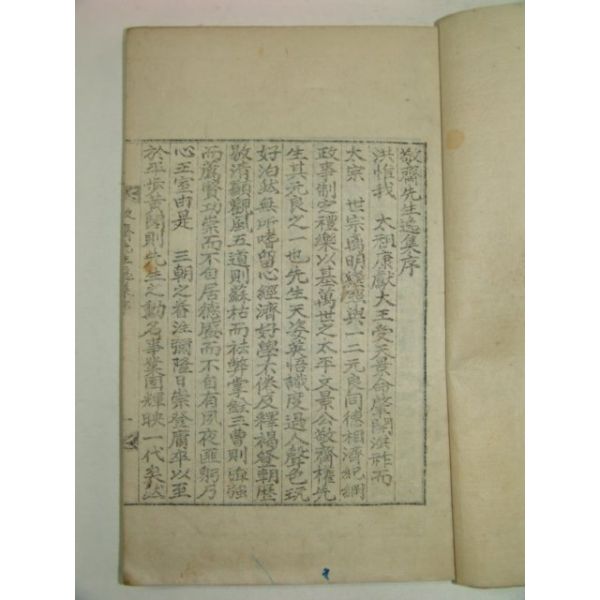 敬齋先生逸集序
洪惟我 太祖康獻大王受天景命肇開洪祚而
太宗 世宗爲明繼照與一二元良同德相濟紀綱
政事制定禮樂以基萬世之太平文景公敬齋權先
生其元良之一也先生天姿英悟識度過人聲色玩
好泊然無所嗜留心經濟好學不倦及釋褐登朝歷
敭清顯觀風五道則蘇枯而祛弊掌銓三曹則 強
而薦賢功崇而不自居德盛而不自有夙夜匪躬乃
心王室由是 三朝之眷注彌隆日崇登庸卒以至
於平步黃閣則先生之勳名事業固輝映一代矣然
敬齋先生逸集序 一